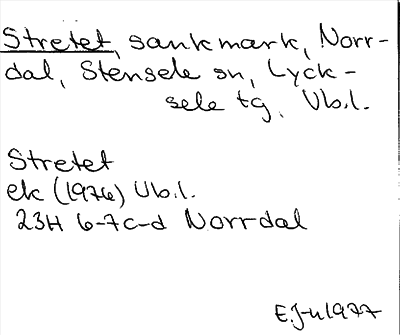 Stretet, sankmark, Norr-
dal, Stensele sn, Lyck-
sele tg. Vb.l.
Stretet
ek (1976) Vb.l.
23H 6-7c-d Norrdal
E.J-n 1977